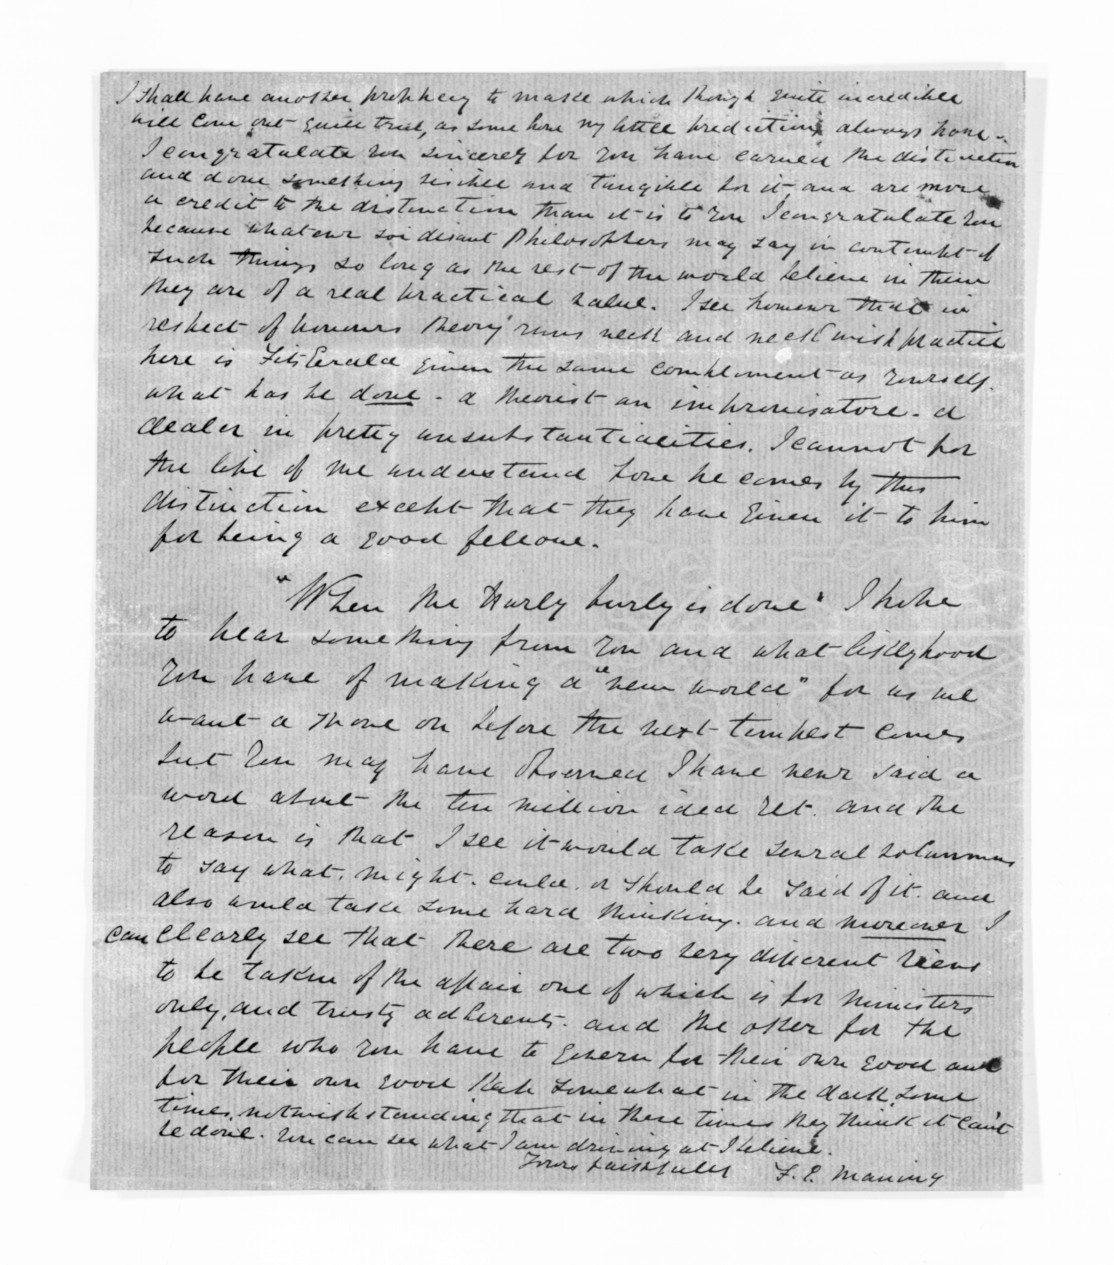 I shall have another prophecy to make which though quite incredible
will come out quite true, as some how my little predictions always have -
I congratulate you sincerely for you have earned the distinction
and done something visible and tangible for it and are more
a credit to the distinction than it is to you I congratulate you
because whatever soi disant Philosophers may say in contempt of
such things so long as the rest of the world believe in them
they are of a real practical value. I see however that in
respect of honours theory runs neck and neck with practice
here is FitzGerald given the same compliment as yourself.
what has he done - a theorist an improvisatore - a
dealer in pretty unsubstantialities. I cannot for
the life of me understand how he comes by this
distinction except that they have given it to him
for being a good fellow.
"When the Hurly burly is done" I hope
to hear something from you and what likelyhood
you have of making a "new world" for us we
want a move on before the next tempest comes
but you may have observed I have never said a
word about the ten million idea yet. and the
reason is that I see it would take several volumns
to say what. might. could. or should be said of it. and
also would take some hard thinking. and moreover I
can clearly see that there are two very different views
to be taken of the affair one of which is for ministers
only, and trusty adherents. and the other for the
people who you have to govern for their own good and
for their own good keep somewhat in the dark some
times, notwithstanding that in these times they think it can't
be done. You can see what I am driving at I believe.
Yours faithfully F. E. Maning